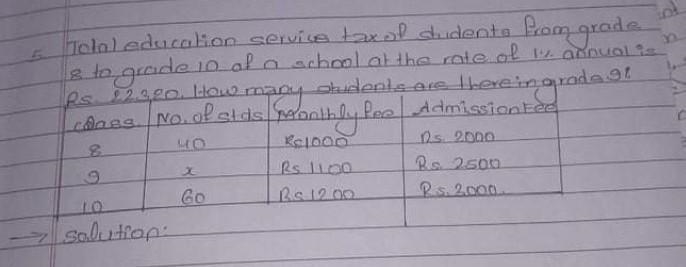 5. Total education service tax of students from grade
8 to grade 10 of a school at the rate of 1% annual is
Rs. 22,320. How many students are there in grade 9?
class No. of stds Monthly fee Admission Fee
8 40 Rs1000 Rs. 2000
9 x Rs 1100 Rs. 2500
10 60 Rs 1200 Rs. 3000.
→ Solution: